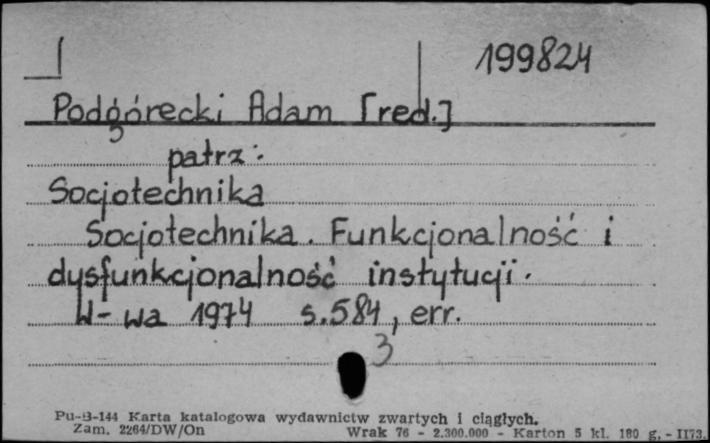 199824
Podgórecki Adam [red.]
patrz:
Socjotechnika
Socjotechnika. Funkcjonalność i
dysfunkcjonalność instytucji.
W-wa 1974 s.584, err.
3
Pu-B-144 Karta katalogowa wydawnictw zwartych i ciągłych.
Zam. 2264/DW/On Wrak 76 - 2.300.000 - Karton 5 kl. 180 g. - II73.